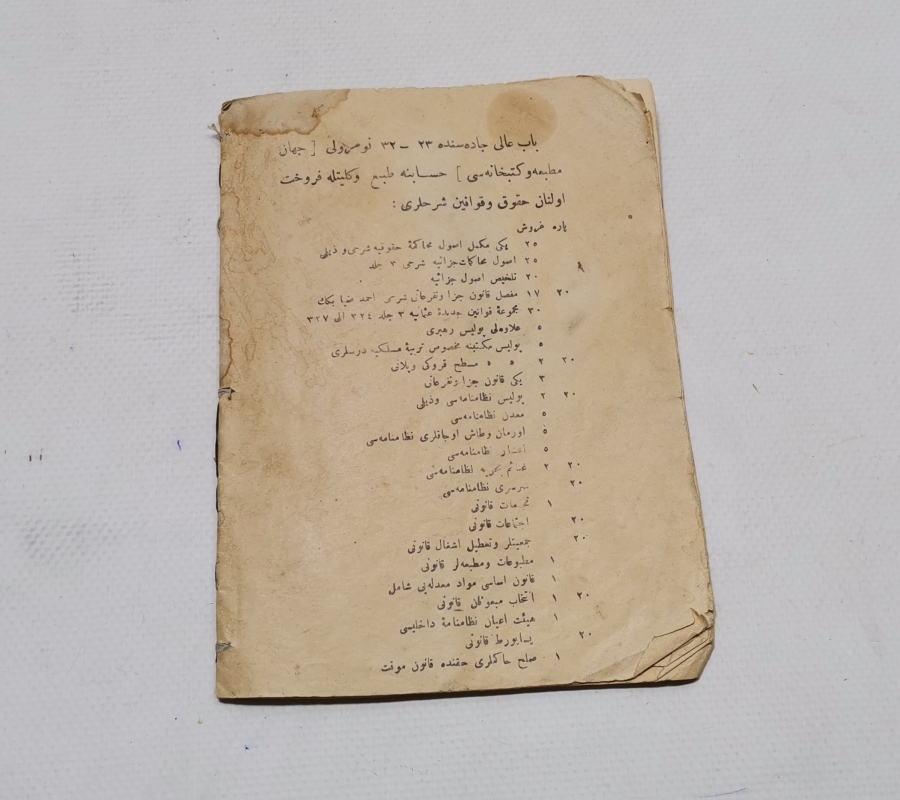 باب عالی جاده‌سنده ٢٣ – ٣٢ نومرولی [ جهان
مطبعه و کتبخانه‌سی ] حسابنه طبع وکلیتله فروخت
اولنان حقوق وقوانین شرحلری :
پاره غروش
٢٥ یکی مکمل اصول محاکمهٔ حقوقیه شرحی و ذیلی
٢٥ اصول محاکمات جزائیه شرحی ٣ جلد
٢٠ تلخیص اصول جزائیه
٢٠ ١٧ مفصل قانون جزا وتفرعاتی شرحی احمد ضیا بك
٣٠ مجموعهٔ قوانین جدیدهٔ عثمانیه ٣ جلد ٣٢٤ الی ٣٢٧
٥ علاوه‌لی پولیس رهبری
٥ پولیس مکتبنه مخصوص تربیهٔ مسلکیه درسلری
٢٠ ٢ » » مسطح قروکی وپلانی
٣ یکی قانون جزا وتفرعاتی
٢٠ ٢ پولیس نظامنامه‌سی وذیلی
٥ معدن نظامنامه‌سی
٥ اورمان وطاش اوجاقلری نظامنامه‌سی
٥ اعشار نظامنامه‌سی
٢٠ ٢ غنائم بحریه نظامنامه‌سی
٢٠ سرسری نظامنامه‌سی
١ قانونی
٢٠ اجتماعات قانونی
٢٠ جمعیتلر وتعطیل اشغال قانونی
١ مطبوعات ومطبعه‌لر قانونی
١ قانون اساسی مواد معدله‌یی شامل
٢٠ ١ انتخاب مبعوثان قانونی
١ هیئت اعیان نظامنامهٔ داخلیسی
٢٠ پساپورط قانونی
١ صلح حاکملری حقنده قانون موقت